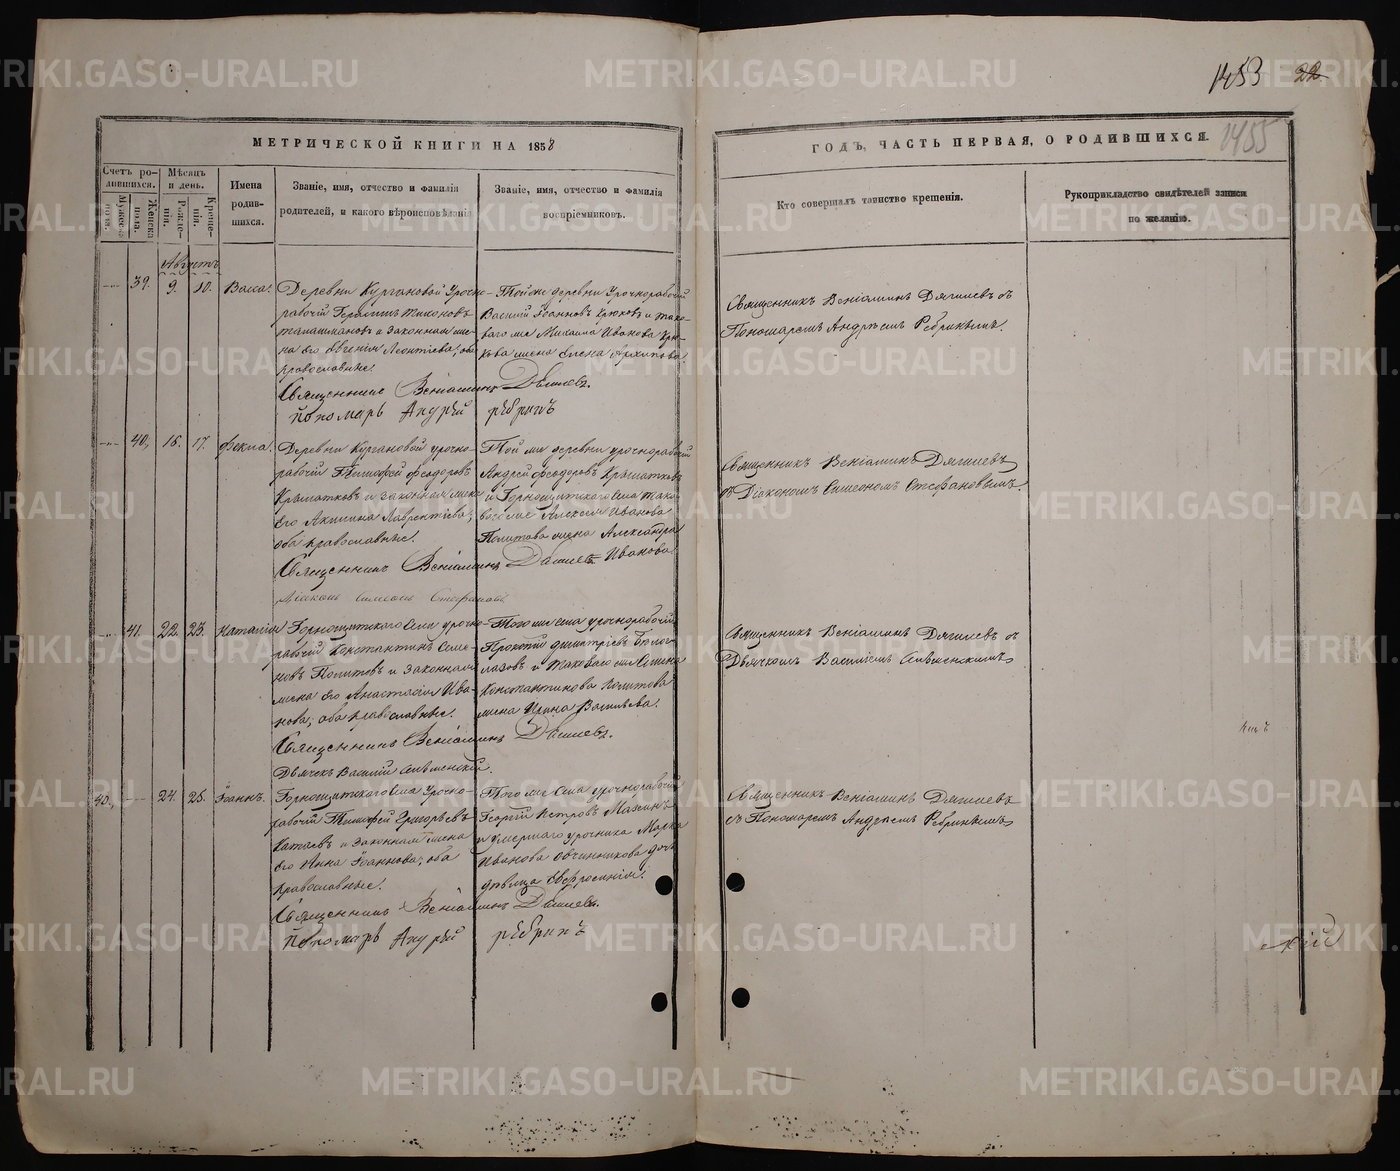 1453 22
1455
МЕТРИЧЕСКОЙ КНИГИ НА 1858
ГОДЪ, ЧАСТЬ ПЕРВАЯ, О РОДИВШИХСЯ.
Счетъ родившихся.
Мужеска пола.
Женска пола.
Мѣсяцъ и день.
Рожденія.
Крещенія.
Имена родившихся.
Званіе, имя, отчество и фамилія
родителей, и какого вѣроисповѣданія
Званіе, имя, отчество и фамилія
воспріемниковъ.
Кто совершалъ таинство крещенія.
Рукоприкладство свидѣтелей записи
по желанію.
Августъ
39. 9. 10. Васса.
Деревни Кургановой Урочно-
рабочій Герасимъ Тихоновъ
и законная же-
на его Евгенія Леонтіева, оба
православные.
Тойже деревни Урочнорабочій
Василій Іоанновъ Крюковъ и тако-
ваго же Михаила Иванова Крю-
кова жена Елена Архипова
Священникъ Веніаминъ Дягилевъ съ
Пономаремъ Андреемъ Ребринымъ.
Священникъ Веніаминъ Дягилевъ.
Пономарь Андрей Ребринъ
40. 16. 17. Фекла.
Деревни Кургановой урочно-
рабочій Тимофей Феодоровъ
и законная жена
его Акилина Лаврентіева,
оба православные.
Той же деревни урочнорабочій
Андрей Феодоровъ
и Горнощитскаго Села тако-
ваго же Алексія Иванова
Политова жена Александра
Иванова
Священникъ Веніаминъ Дягилевъ
съ Діакономъ Симеономъ Стефановымъ.
Священникъ Веніаминъ Дягилевъ
Діаконъ Симеонъ Стефановъ
41. 22. 23. Наталія
Горнощитскаго Села урочно-
рабочій Константинъ Семе-
новъ Политовъ и законная
жена его Анастасія Ива-
нова, оба православные.
Того же села урочнорабочій
Прокопій Димитріевъ Бѣлог-
лазовъ и таковаго же
Константинова Политова
жена Ирина Васильева.
Священникъ Веніаминъ Дягилевъ съ
Дьячкомъ Василіемъ
Священникъ Веніаминъ Дягилевъ.
Дьячекъ Василій
40. 24. 25. Іоаннъ.
Горнощитскаго Села Урочно-
рабочій Тимофей Григорьевъ
Катаевъ и законная жена
его Анна Іоаннова, оба
православные.
Того же Села урочнорабочій
Георгій Петровъ Мазинъ
и умершаго урочника Марка
Иванова Овчинникова дочь
дѣвица Евфросинія.
Священникъ Веніаминъ Дягилевъ
съ Пономаремъ Андреемъ Ребринымъ
Священникъ Веніаминъ Дягилевъ.
Пономарь Андрей Ребринъ
METRIKI.GASO-URAL.RU